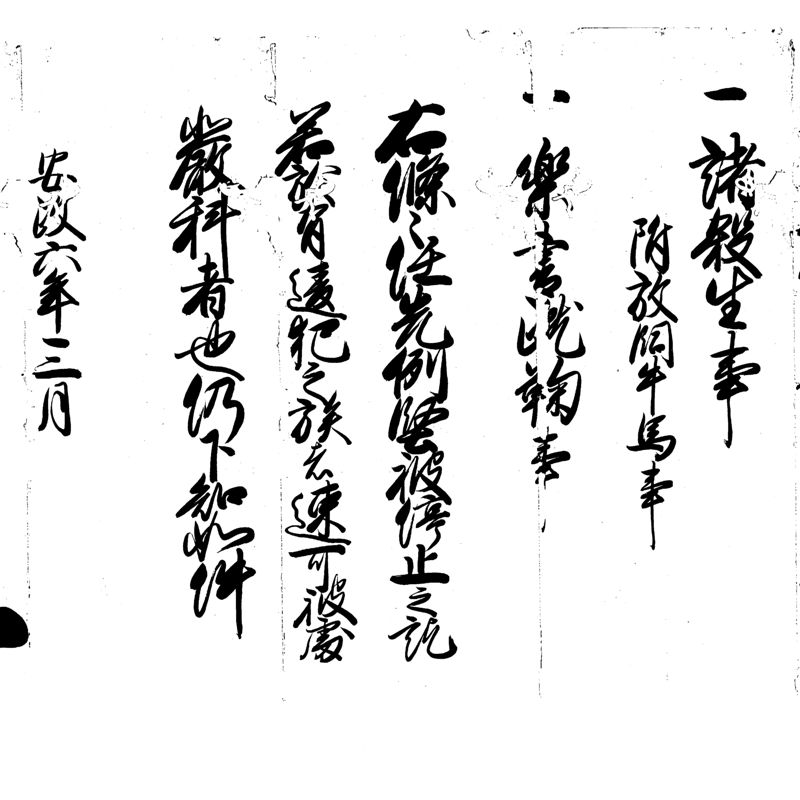 一 諸殺生事
附放飼牛馬事
一 樂書蹴鞠事
右條々任先例堅被停止之訖
若於有違犯之族者速可被處
嚴科者也仍下知如件
安政六年三月